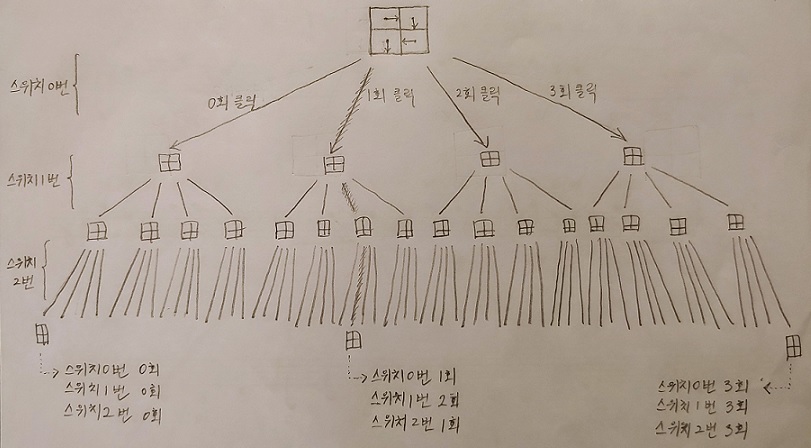 스위치0번
0회 클릭
1회 클릭
2회 클릭
3회 클릭
스위치1번
스위치
2번
스위치0번 0회
스위치1번 0회
스위치2번 0회
스위치0번 1회
스위치1번 2회
스위치2번 1회
스위치0번 3회
스위치1번 3회
스위치2번 3회